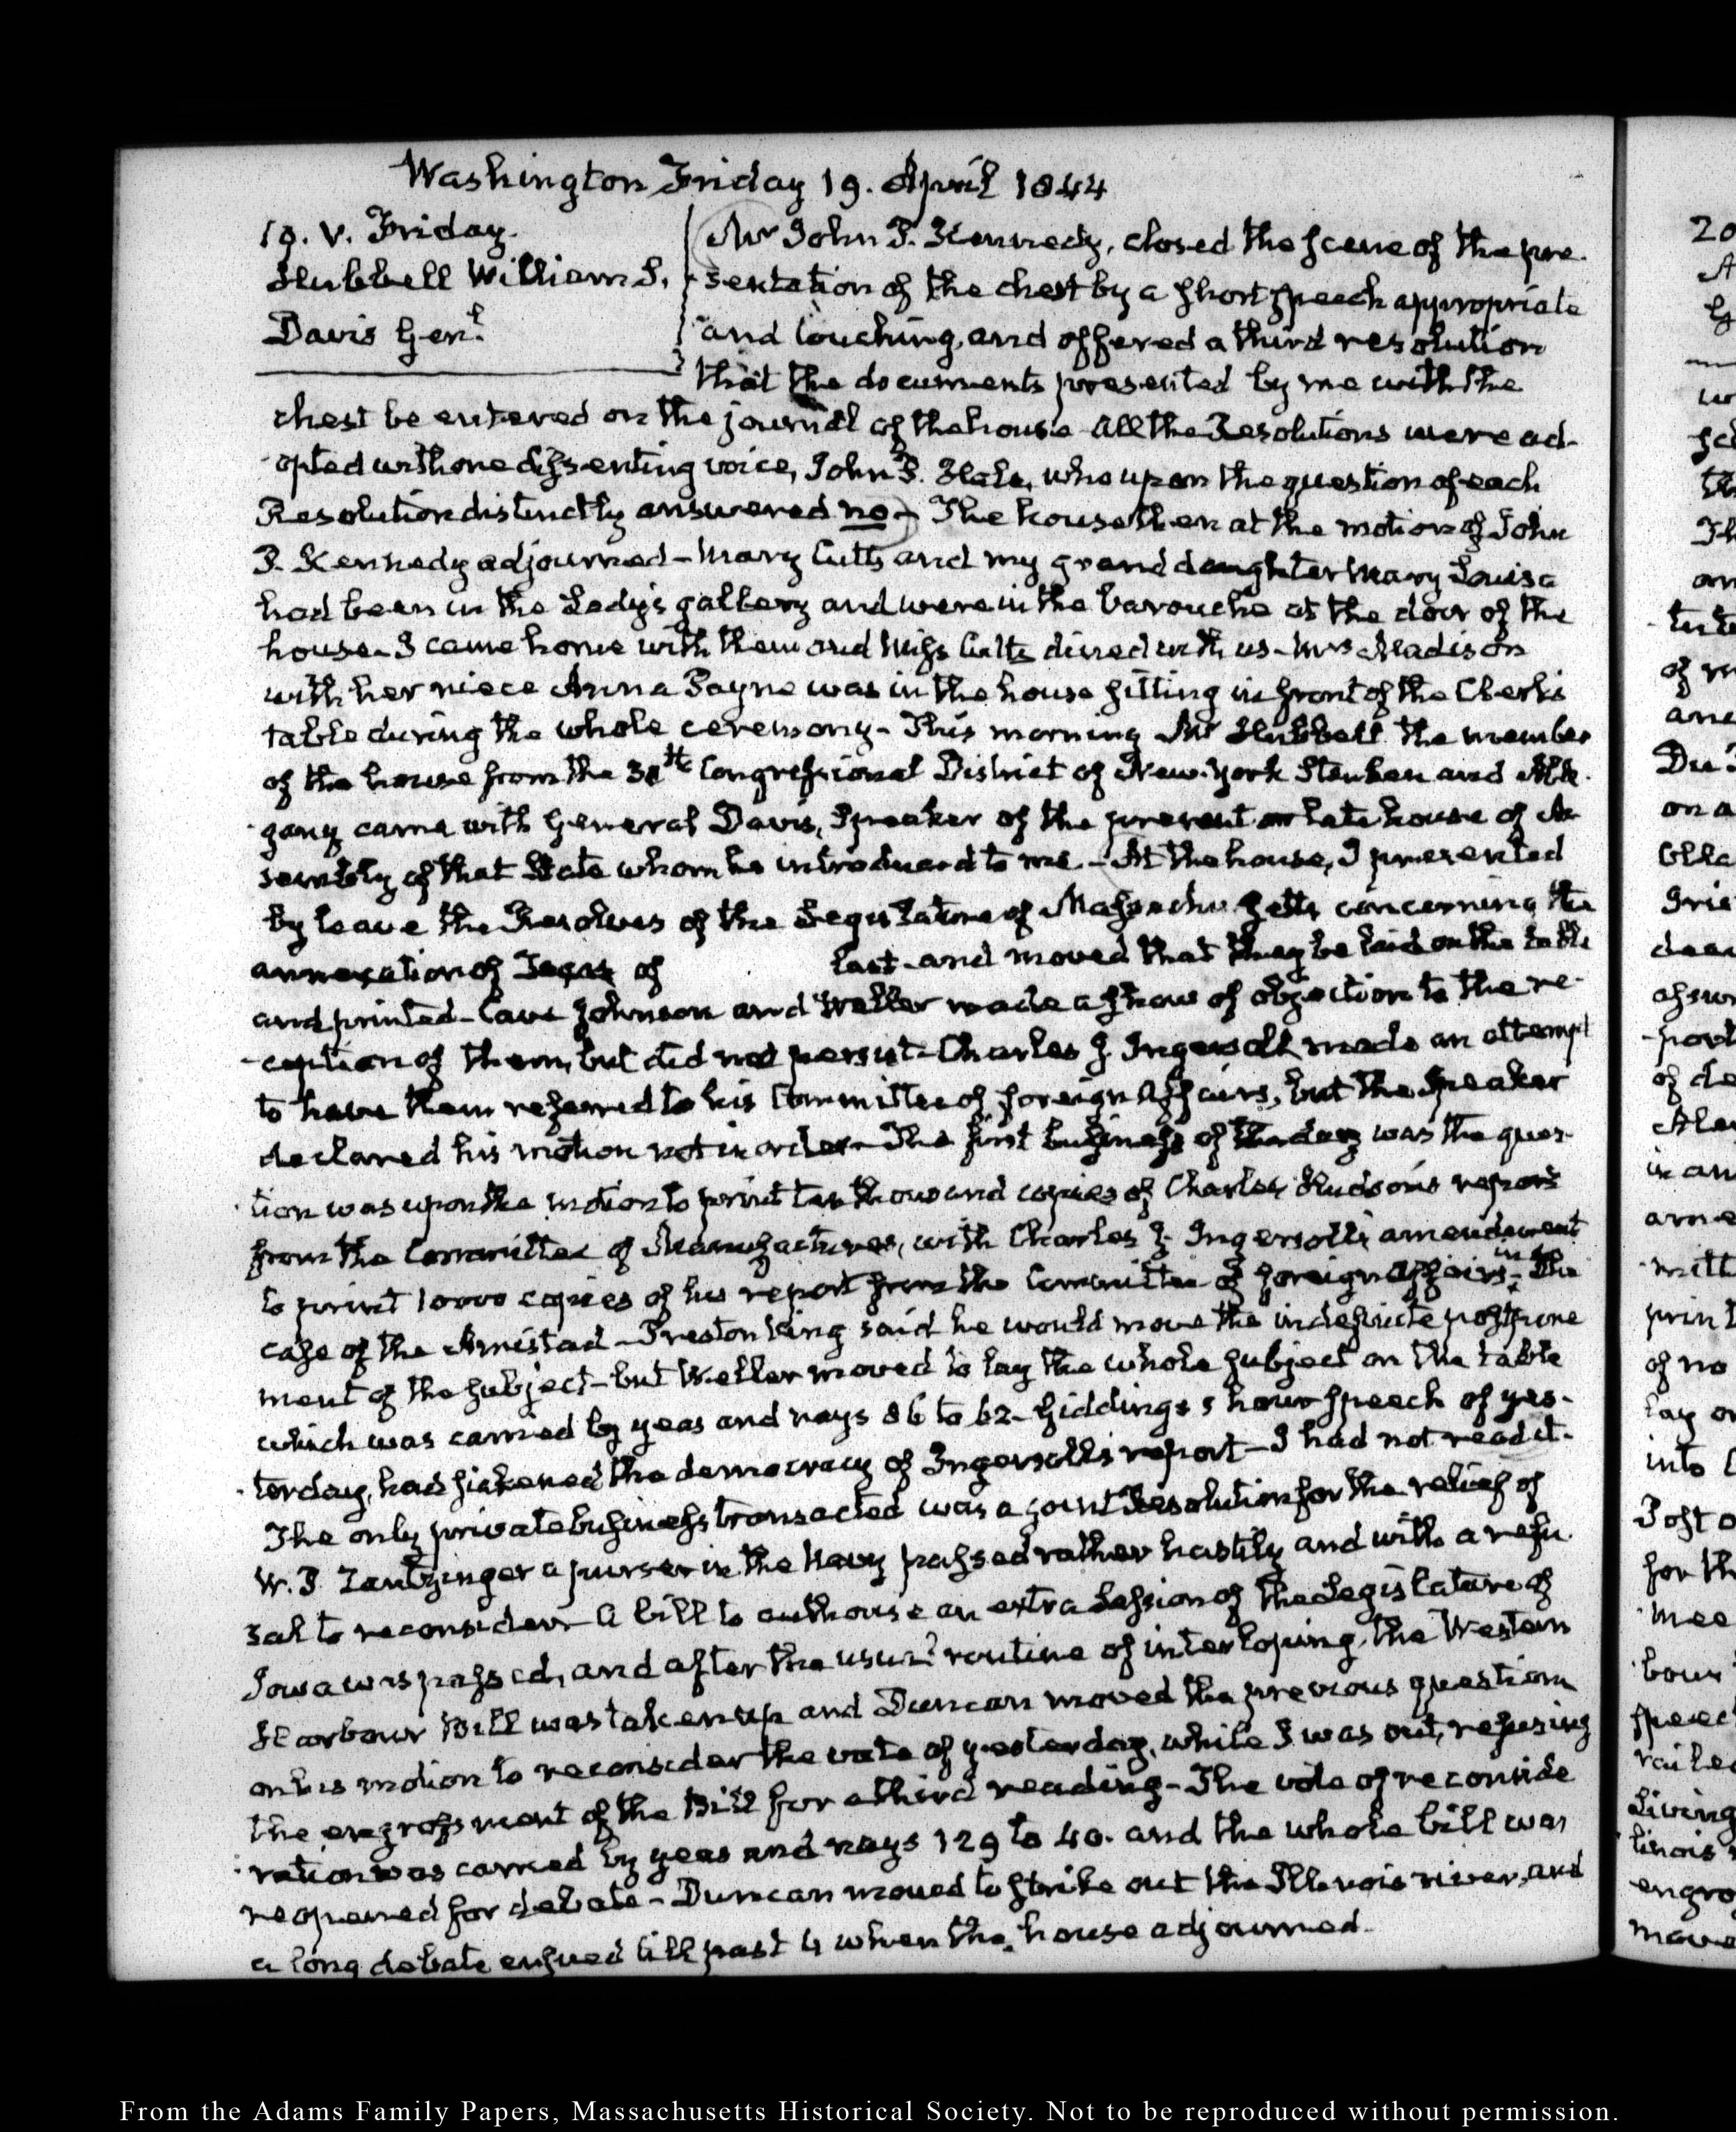 Washington Friday 19. April 1844
19. V. Friday.
Hubbell William S.
Davis Genl.
Mr John P. Kennedy, closed the scene of the pre-
sentation of the chest by a short speech appropriate
and touching, and offered a third resolution
that the documents presented by me with the
chest be entered on the journal of the house. All the Resolutions were ad-
opted with one dissenting voice, John P. Hale, who upon the question of each
Resolution distinctly answered no— The house then at the motion of John
P. Kennedy adjourned— Mary Cutts and my grand daughter Mary Louisa
had been in the Lady's gallery and were in the barouche at the door of the
house. I came home with them and Miss Cutts dined with us— Mrs Madison
with her niece Anna Payne was in the house sitting in front of the Clerk's
table during the whole ceremony— This morning Mr Hubbell the member
of the house from the 30th Congressional District of New-York Steuben and Alle-
gany came with General Davis, Speaker of the present or late house of As-
sembly of that State whom he introduced to me.— At the house, I presented
by leave the Resolves of the Legislature of Massachusetts concerning the
annexation of Texas of last— and moved that they be laid on the table
and printed— Cave Johnson and Weller made a show of objection to the re-
ception of them, but did not persist— Charles J. Ingersoll made an attempt
to have them referred to his Committee of foreign Affairs, but the Speaker
declared his motion not in order— The first business of the day was the ques-
tion was upon the motion to print ten thousand copies of Charles Hudson's report
from the Committee of Manufactures, with Charles J. Ingersoll's amendment
to print 10000 copies of his report from the Committee of foreign affairs, in the
case of the Amistad— Preston King said he would move the indefinite postpone
ment of the subject— but Weller moved to lay the whole subject on the table
which was carried by yeas and nays 86 to 62— Giddings's hour speech of yes-
terday, had sickened the democracy of Ingersoll's report— I had not read it.
The only private business transacted was a joint Resolution for the relief of
W. P. Zantzinger a purser in the Navy passed rather hastily and with a refu-
sal to reconsider— A bill to authorise an extra Session of the Legislature of
Iowa was passed, and after the usual routine of interloping, the Western
Harbour Bill was taken up and Duncan moved the previous question
on his motion to reconsider the vote of yesterday, while I was out, refusing
the engrossment of the Bill for a third reading— The vote of reconside
ration was carried by yeas and nays 129 to 40. and the whole bill was
reopened for debate— Duncan moved to strike out the Illinois river, and
a long debate ensued till past 4 when the house adjourned.
From the Adams Family Papers, Massachusetts Historical Society. Not to be reproduced without permission.